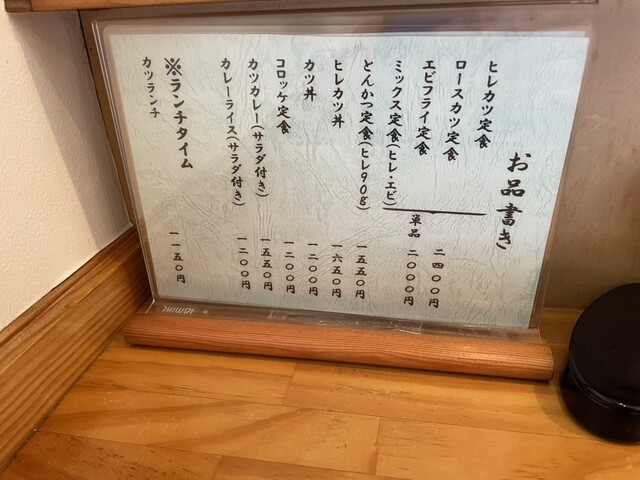 お品書き
ヒレカツ定食
ロースカツ定食
エビフライ定食
ミックス定食(ヒレ・エビ)
二四〇〇円
単品 二〇〇〇円
とんかつ定食(ヒレ90g) 一五五〇円
ヒレカツ丼 一六五〇円
カツ丼 一二〇〇円
コロッケ定食 一二〇〇円
カツカレー(サラダ付き) 一五五〇円
カレーライス(サラダ付き) 一二〇〇円
※ランチタイム
カツランチ 一一五〇円